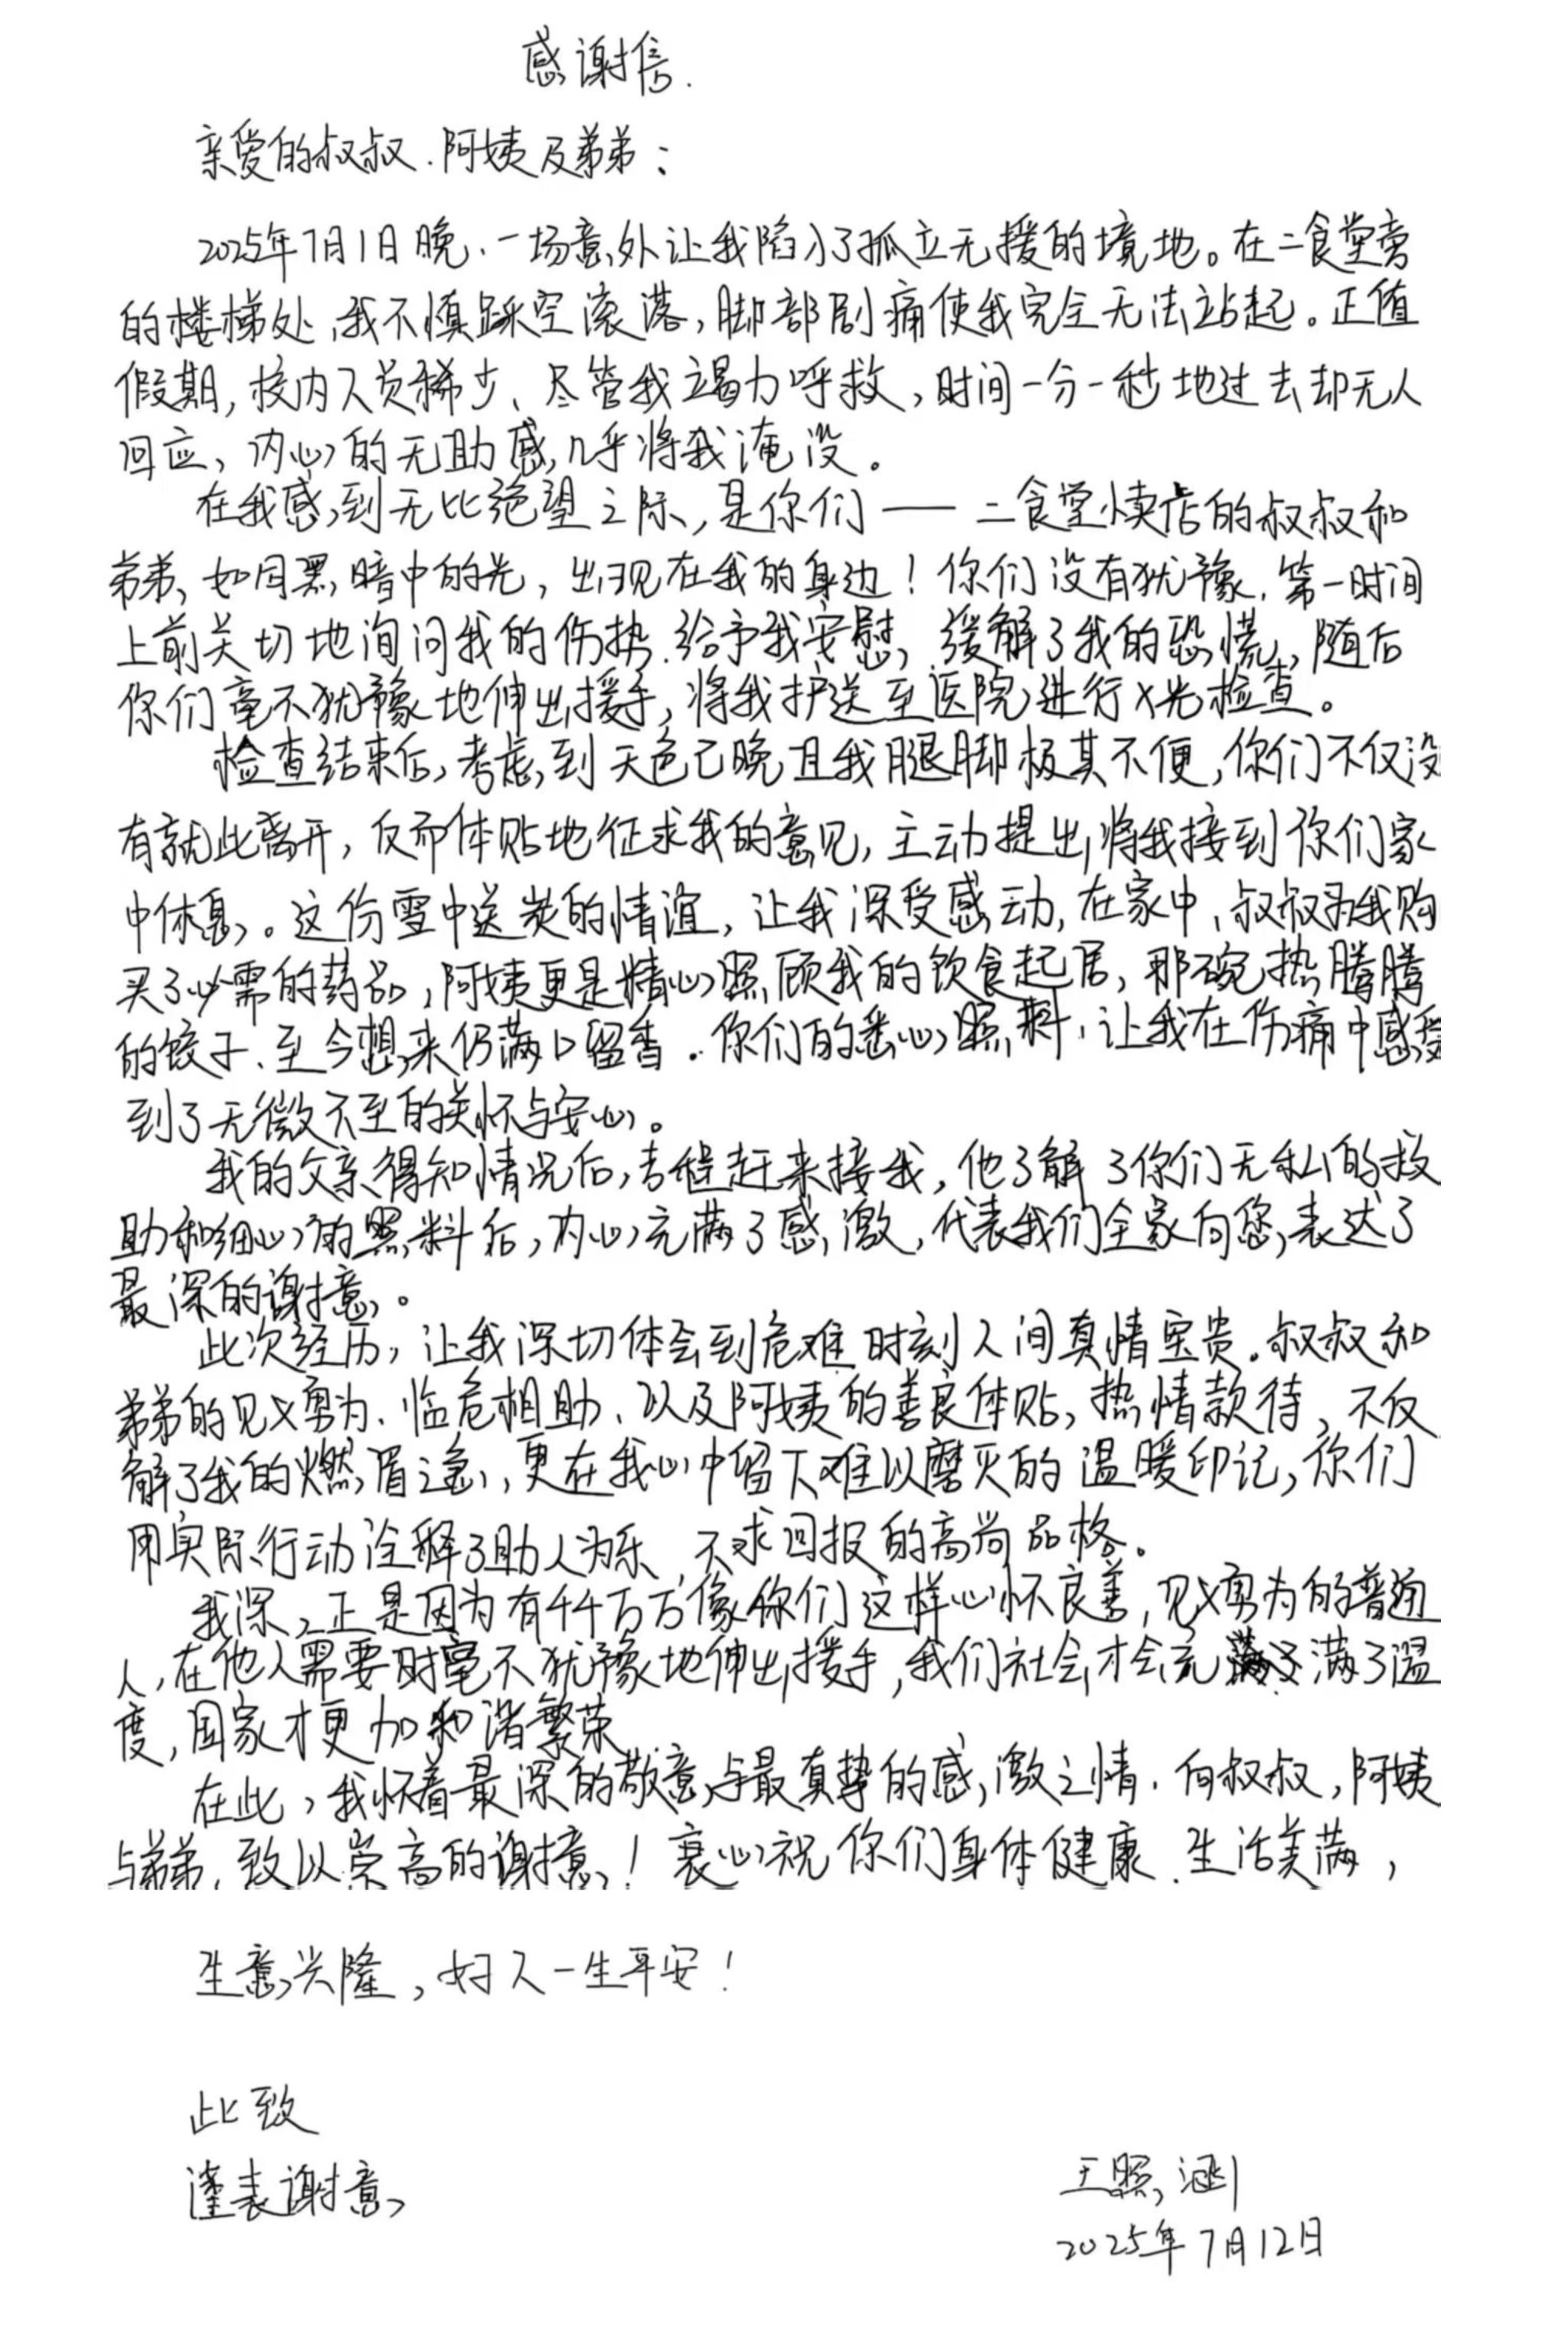 感谢信.
亲爱的叔叔.阿姨及弟弟：
2025年7月1日晚.一场意外让我陷入了孤立无援的境地。在二食堂旁
的楼梯处,我不慎踩空滚落,脚部剧痛使我完全无法站起。正值
假期,校内人员稀少、尽管我竭力呼救,时间一分一秒地过去却无人
回应、内心的无助感几乎将我淹没。
在我感到无比绝望之际,是你们——二食堂小卖店的叔叔和
弟弟、如同黑暗中的光,出现在我的身边！你们没有犹豫.第一时间
上前关切地询问我的伤势.给予我安慰,缓解了我的恐慌,随后
你们毫不犹豫地伸出援手,将我护送至医院进行X光检查。
检查结束后,考虑到天色已晚且我腿脚极其不便,你们不仅没
有就此离开,反而体贴地征求我的意见,主动提出将我接到你们家
中休息。这份雪中送炭的情谊,让我深受感动,在家中、叔叔为我购
买了必需的药品,阿姨更是精心照顾我的饮食起居,那碗热腾腾
的饺子、至今想来仍满口留香.你们的悉心照料,让我在伤痛中感受
到了无微不至的关怀与安心。
我的父亲得知情况后,专程赶来接我,他了解了你们无私的救
助和细心的照料后,内心充满了感激,代表我们全家向您表达了
最深的谢意。
此次经历,让我深切体会到危难时刻人间真情宝贵。叔叔和
弟弟的见义勇为、临危相助、以及阿姨的善良体贴,热情款待,不仅
解了我的燃眉之急,更在我心中留下难以磨灭的温暖印记,你们
用实际行动诠释了助人为乐、不求回报的高尚品格。
我深,正是因为有千千万万像你们这样心怀良善,见义勇为的普通
人,在他人需要时毫不犹豫地伸出援手,我们社会才会充满了温
度,国家才更加和谐繁荣
在此,我怀着最深的敬意与最真挚的感激之情.向叔叔,阿姨
与弟弟,致以崇高的谢意！衷心祝你们身体健康.生活美满,
生意兴隆,好人一生平安！
此致
谨表谢意
王照涵
2025年7月12日